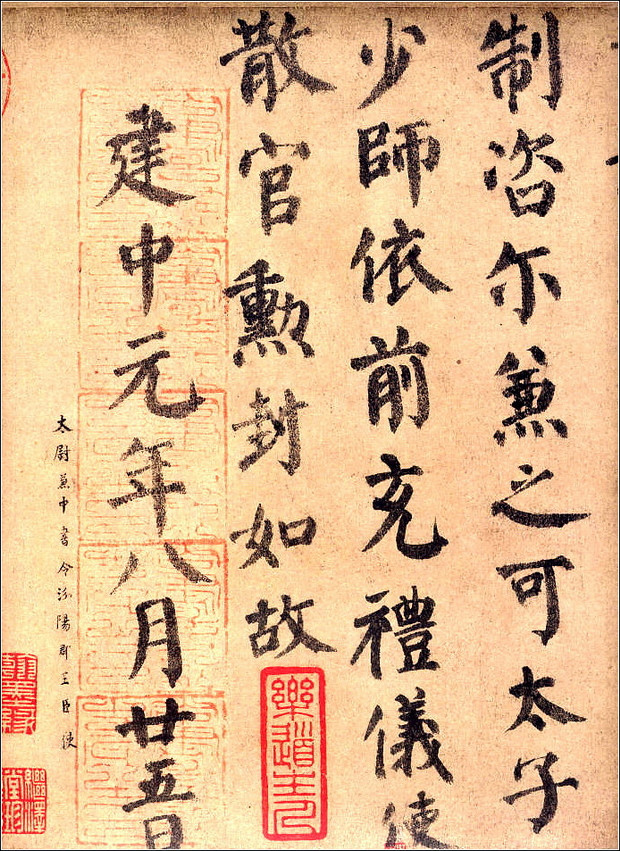 制咨尔兼之可太子
少師依前充禮儀使
散官勲封如故
建中元年八月廿五日
太尉兼中書令汾陽郡王臣使
樂道主人